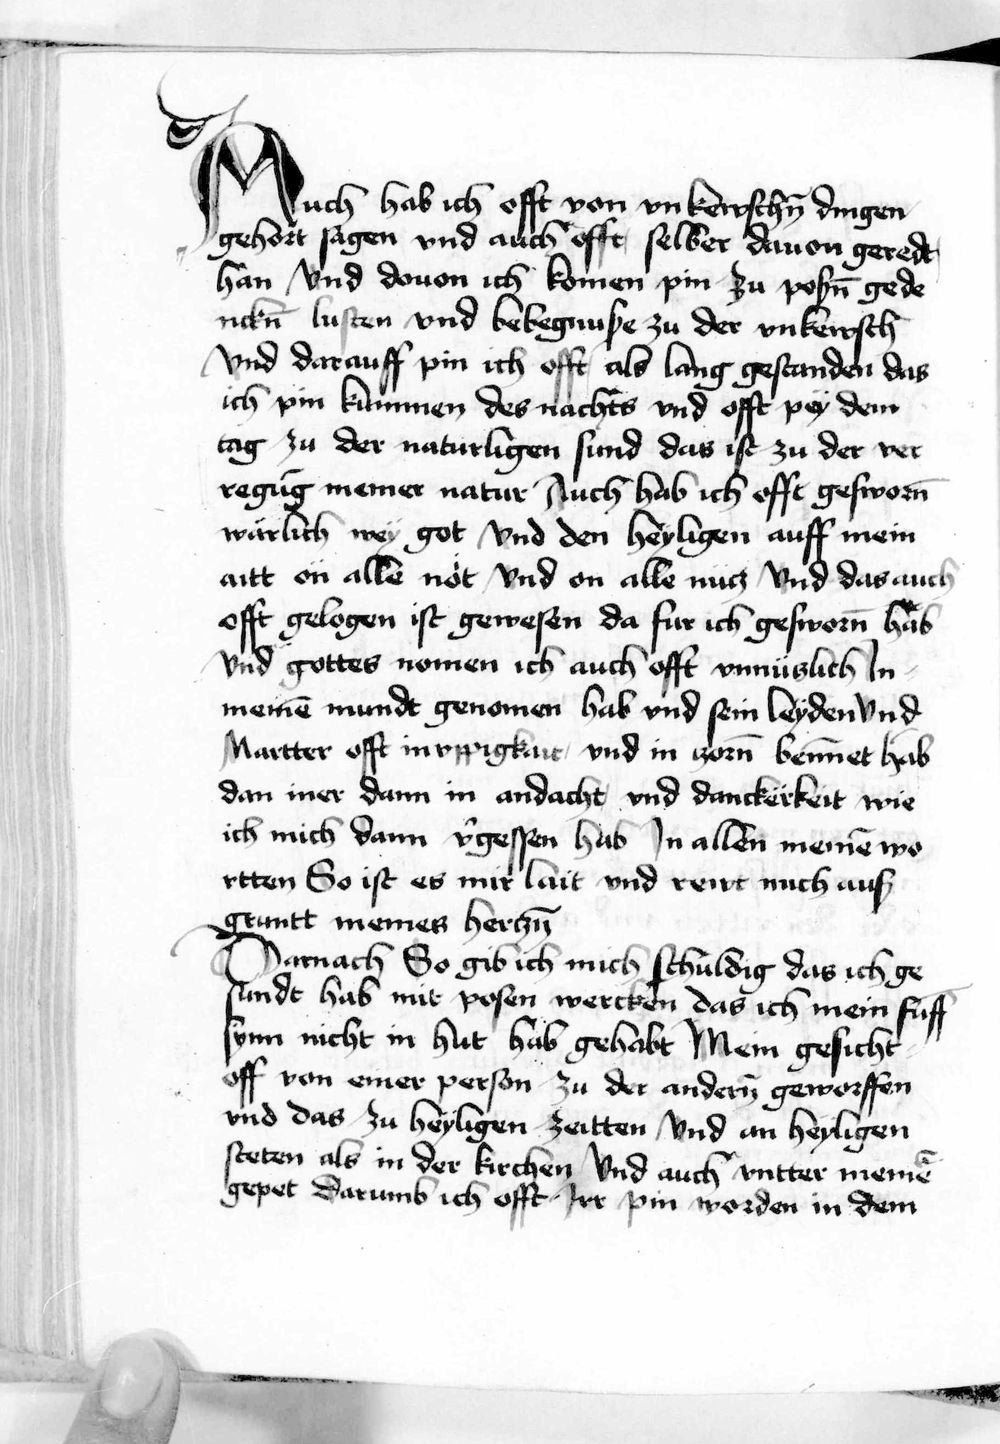 Auch hab ich offt von vnkewschn̄ dingen
gehort sagen vnd auch offt selber dauon geredt
han Vnd douon ich komen pin zu posn̄ gede
nckn̄ lusten vnd bebegnuse zu der vnkewsch
Vnd darauff pin ich offt als lang gestanden das
ich pin kummen des nachts vnd offt pey dem
tag zu der naturligen sund das ist zu der ver
regūg meiner natur Auch hab ich offt gesworn̄
wärlich wey got Vnd den heyligen auff mein
aitt on alle not Vnd on alle nucz Vnd das auch
offt gelogen ist gewesen da fur ich gesworn̄ hab
Vnd gottes nomen ich auch offt vnnüczlich In
meinē mundt genomen hab vnd sein leyden Vnd
Martter offt in vppigkait vnd in zorn̄ bennet hab
dan mer dann in andacht vnd danckerkeit wie
ich mich dann v̄gessen hab In allen meinē wo
rtten So ist es mir lait vnd rewt mich aus
gruntt meines herczn̄
Darnach So gib ich mich schuldig das ich ge
sundt hab mit posen wercken das ich mein fuff
synn nicht in hut hab gehabt Mein gesicht
off von einer person zu der andern̄ geworffen
vnd das zu heyligen zeitten Vnd an heyligen
steten als in der kirchen Vnd auch vntter meinē
gepet darumb ich offt Irr pin worden in dem